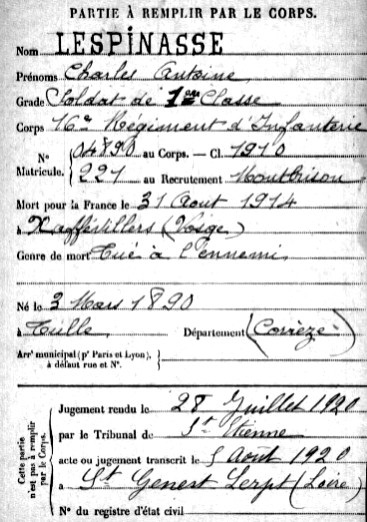 PARTIE À REMPLIR PAR LE CORPS.
Nom LESPINASSE
Prénoms Charles Antoine
Grade Soldat de 1ère Classe
Corps 16e Régiment d'Infanterie
N° Matricule. 04890 au Corps. — Cl. 1910
221 au Recrutement Montbrison
Mort pour la France le 31 Août 1914
à Xaffévillers (Vosge)
Genre de mort Tué à l'ennemi
Né le 3 Mars 1890
à Tulle Département (Corrèze)
Arrt municipal (pr Paris et Lyon), à défaut rue et N°.
Cette partie n'est pas à remplir par le Corps.
Jugement rendu le 28 Juillet 1920
par le Tribunal de St Etienne
acte ou jugement transcrit le 5 Août 1920
à St Genest Lerpt (Loire)
N° du registre d'état civil